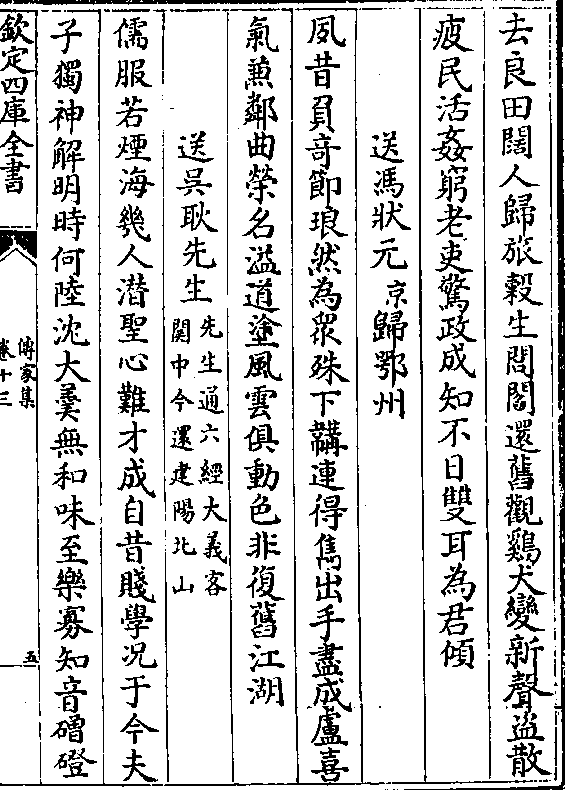 去良田闊人歸旅穀生閻閻還舊觀鷄犬變新聲盜散
疲民活姦窮老吏驚政成知不日雙耳為君傾
送馮狀元京歸鄂州
夙昔負竒節琅然為衆殊下鞲連得雋出手盡成盧喜
氣兼鄰曲榮名溢道塗風雲俱動色非復舊江湖
送吳耿先生先生通六經大義客
關中今還建陽北山
儒服若煙海幾人潛聖心難才成自昔賤學况于今夫
子獨神解明時何陸沈大羮無和味至樂寡知音磳磴
欽定四庫全書
傳家集
卷十三
五